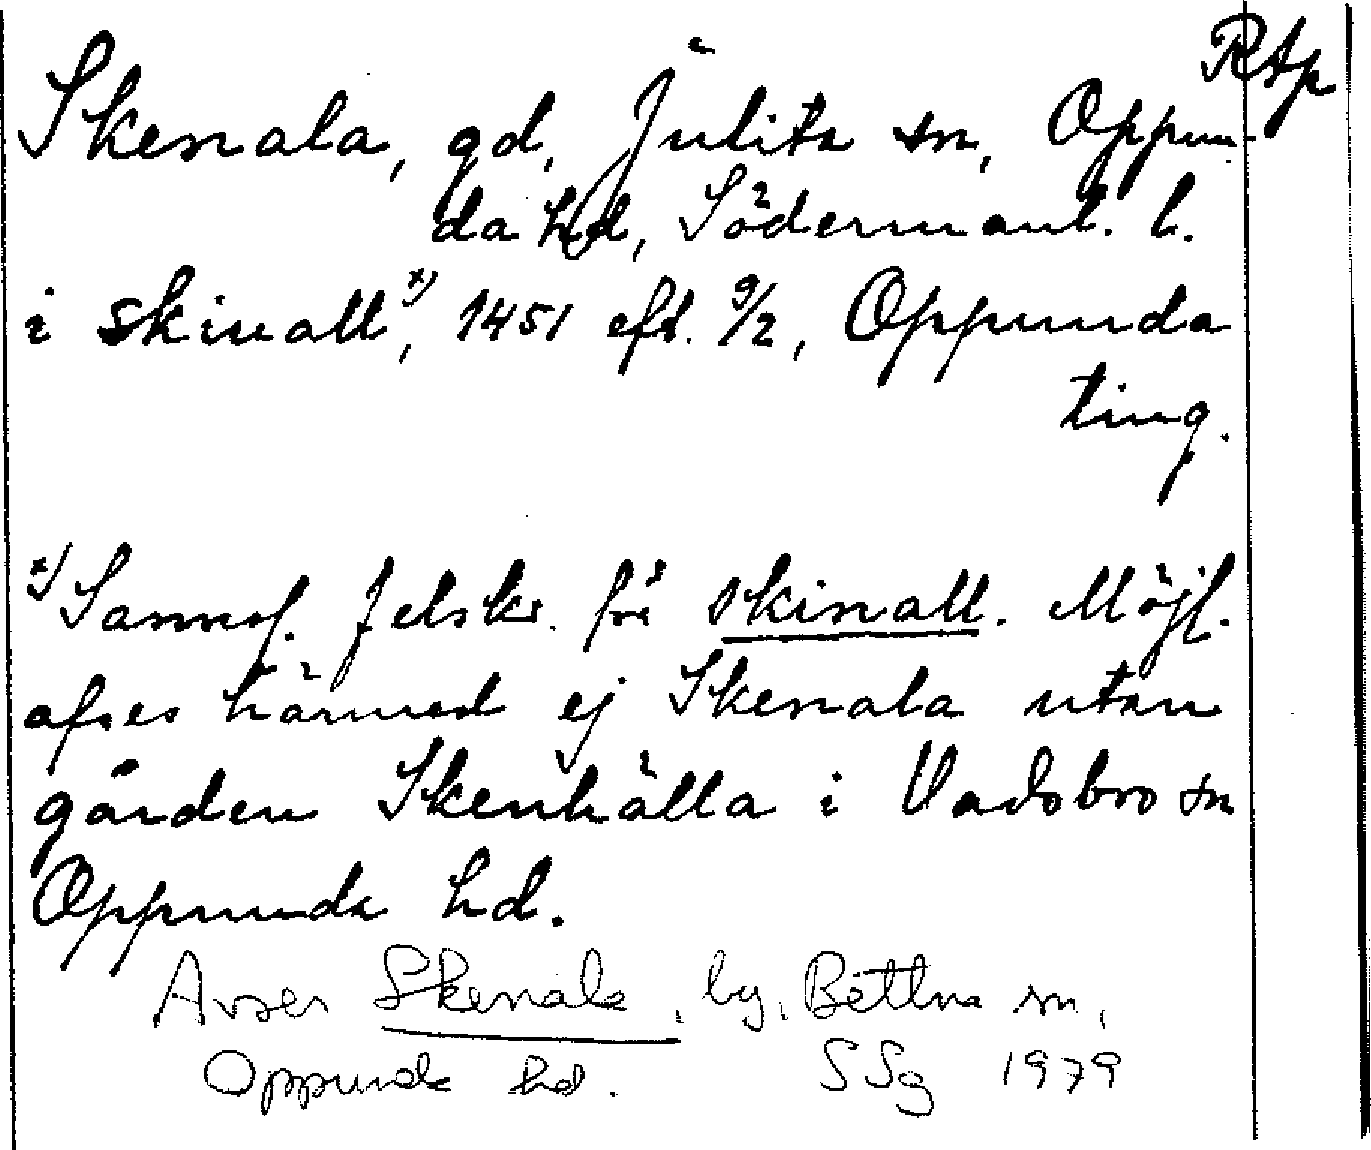 Rtp
Skenala, gd, Julita sn, Oppun-
da hd, Södermanl. l.
i skinall x), 1451 eft. 9/2, Oppunda
ting.
x) Sannol. felskr. för skinall. Möjl.
afses härmed ej Skenala utan
gården Skenhälla i Vadsbro sn
Oppunda hd.
Avser Skenala, by, Bettna sn,
Oppunda hd. SSg 1979